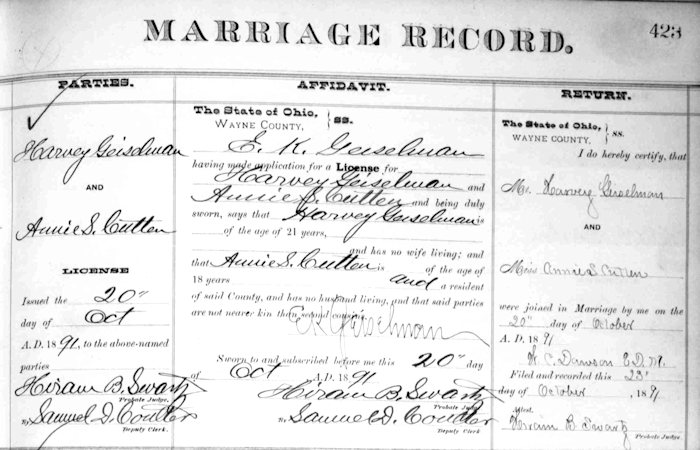 423
MARRIAGE RECORD.
PARTIES.
Harvey Geiselman
AND
Annie S. Cutten
LICENSE
Issued the 20"
day of Oct
A. D. 1891, to the above-named
parties
Hiram B. Swartz
Probate Judge.
By Samuel D. Coulter
Deputy Clerk.
AFFIDAVIT.
The State of Ohio,
WAYNE COUNTY, ss.
E. K. Geiselman
having made application for a License for
Harvey Geiselman and
Annie S. Cutten and being duly
sworn, says that Harvey Geiselman is
of the age of 21 years,
and has no wife living; and
that Annie S. Cutten is of the age of
18 years and a resident
of said County, and has no husband living, and that said parties
are not nearer kin than second cousins.
E. K. Geiselman
Sworn to and subscribed before me this 20" day
of Oct A. D. 1891
Hiram B. Swartz
Probate Judge.
By Samuel D. Coulter
Deputy Clerk.
RETURN.
The State of Ohio,
WAYNE COUNTY, ss.
I do hereby certify, that
Mr. Harvey Geiselman
AND
Miss Annie S Cutten
were joined in Marriage by me on the
20" day of October
A. D. 1891
H. C. Dawson E.D.M.
Filed and recorded this 23"
day of October, 1891
Attest
Hiram B Swartz
Probate Judge.